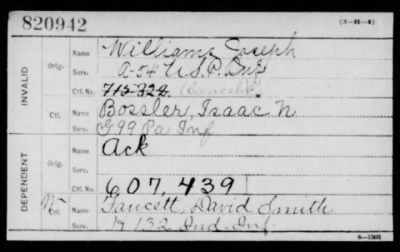 820942
(3-H-4)
INVALID
Orig.
Name Williams Joseph
Serv. A-54 U.S.P. Inf
Ctf. No. 715-328 (Cancelled)
Ctf.
Name Bossler, Isaac N
Serv. G 99 Pa Inf
DEPENDENT
Orig.
Name Ack
Serv.
Ctf. No. 607,439
Ctf.
Name Faucett, David Smith
Serv. H 132 Ind. Inf.
6-1308